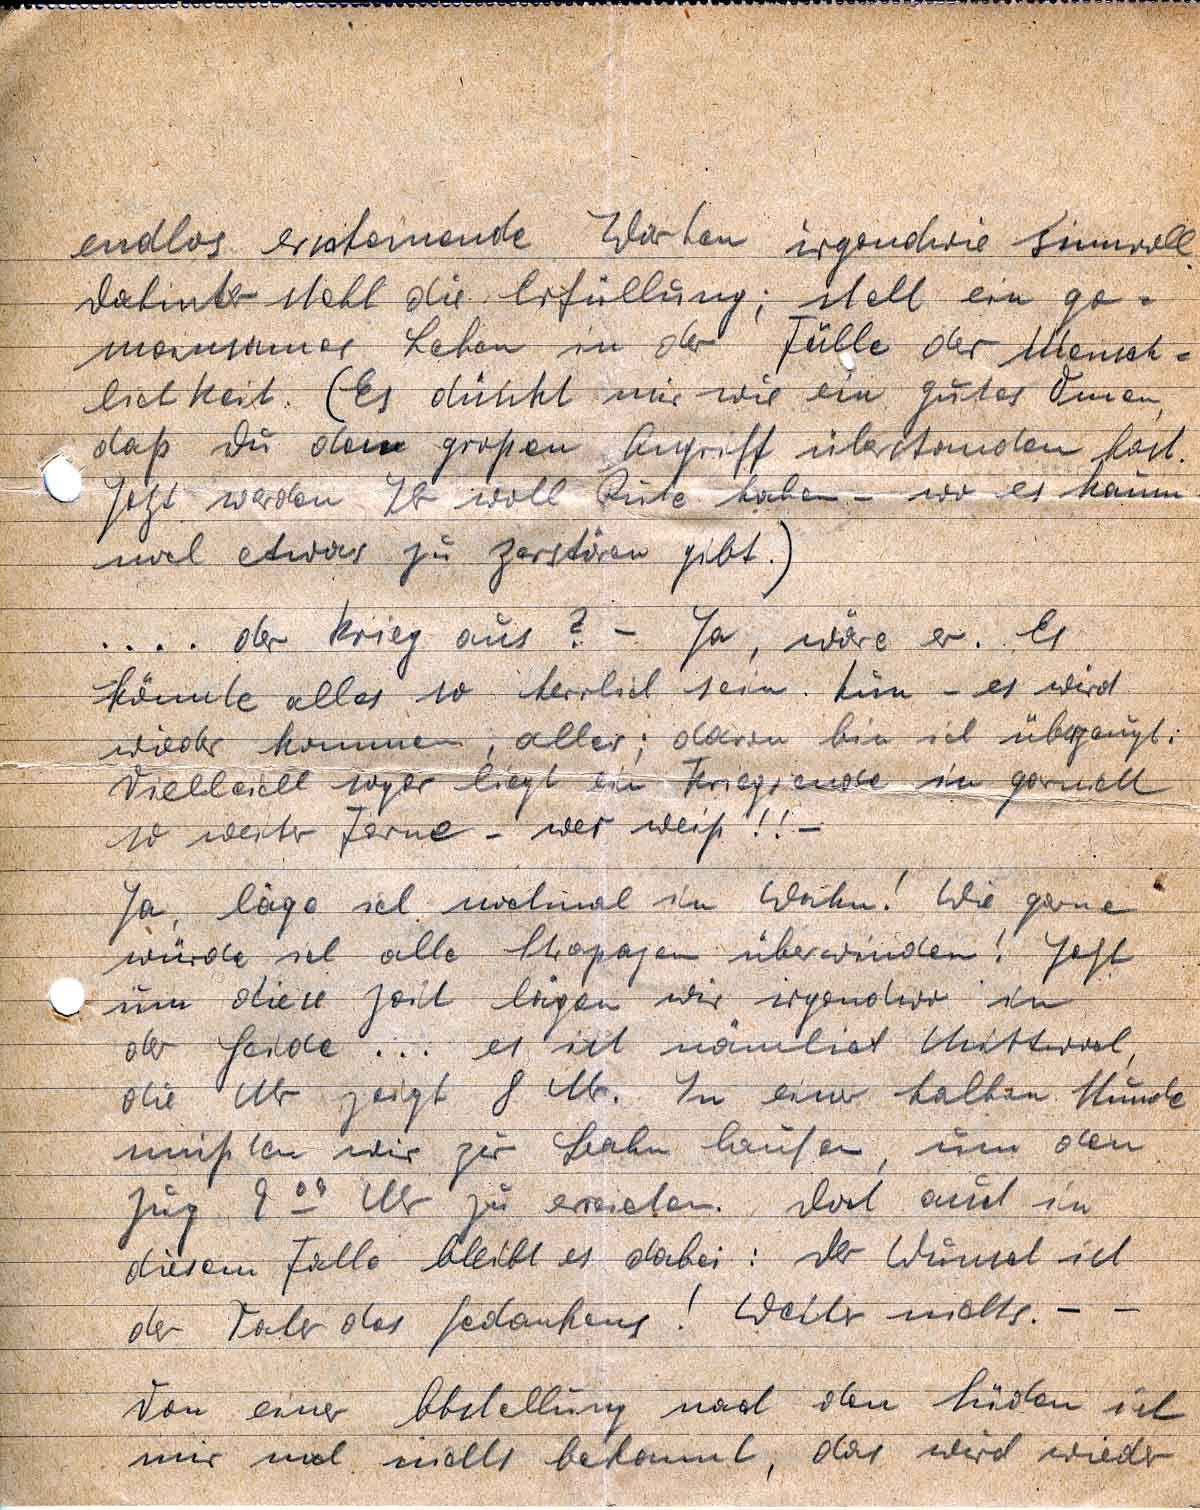 endlos erscheinende Warten irgendwie sinnvoll.
Dahinter steht die Erfüllung; steht ein ge-
meinsames Leben in der Fülle der Mensch-
lichkeit. (Es dünkt mir wie ein gutes Omen,
daß Du den großen Angriff überstanden hast.
Jetzt werden Ihr wohl Ruhe haben – wo es kaum
noch etwas zu zerstören gibt.)
.... der Krieg aus? – Ja, wäre er. Es
könnte alles so herrlich sein. Nun – es wird
wieder kommen, alles; davon bin ich überzeugt.
Vielleicht sogar liegt ein Kriegsende in garnicht
so weiter Ferne – wer weiß!! –
Ja, läge ich nochmal in Wahn! Wie gerne
würde ich alle Strapazen überwinden! Jetzt
um diese Zeit lägen wir irgendwo in
der Heide ... es ist nämlich Mittwoch,
die Uhr zeigt 8 Uhr. In einer halben Stunde
müßten wir zur Bahn laufen, um den
Zug 9 09 Uhr zu erreichen. Doch auch in
diesem Falle bleibt es dabei: der Wunsch ist
der Vater des Gedankens! Weiter nichts. – –
Von einer Abstellung nach dem Süden ist
mir noch nichts bekannt, das wird wieder